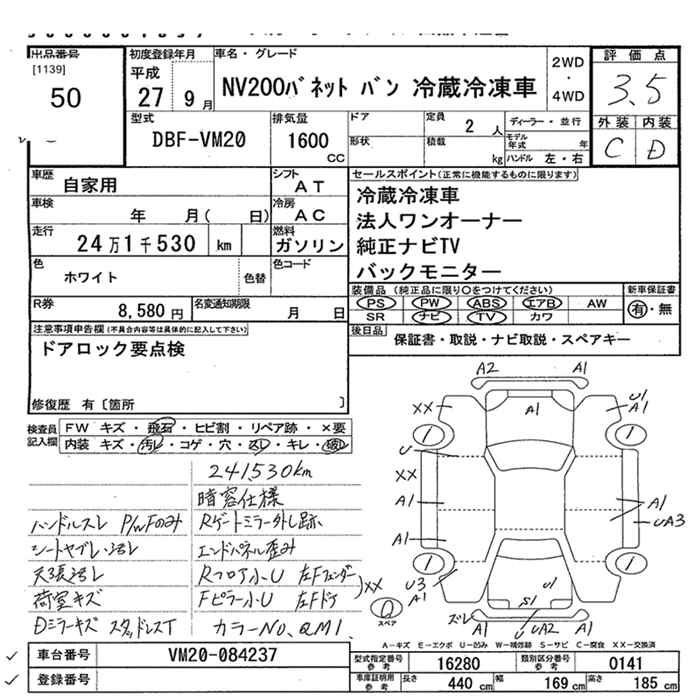 出品番号
[1139]
50
初度登録年月
平成
27 9月
車名・グレード
NV200バネット バン 冷蔵冷凍車
2WD
・
4WD
評価点
3.5
外装 内装
C D
型式
DBF-VM20
排気量
1600
CC
ドア
形状
定員 2 人
積載 kg
ディーラー・並行
モデル年式 年
ハンドル 左・右
車歴 自家用
シフト AT
車検 年 月( 日)
冷房 AC
走行 24万1千530 km
燃料 ガソリン
色 ホワイト 色替
色コード
R券 8,580円
名変通知期限 月 日
セールスポイント(正常に機能するものに限ります)
冷蔵冷凍車
法人ワンオーナー
純正ナビTV
バックモニター
装備品 (純正品に限り○をつけてください)
PS PW ABS エアB AW
SR ナビ TV カワ
新車保証書
有・無
後日品 保証書・取説・ナビ取説・スペアキー
注意事項申告欄(不具合内容等は具体的に記入して下さい)
ドアロック要点検
修復歴 有〔箇所 〕
検査員記入欄
FW キズ・飛石・ヒビ割・リペア跡・×要
内装 キズ・汚レ・コゲ・穴・スレ・キレ・破レ
241,530km
暗窓仕様
ハンドルスレ P/WFのみ
Rゲートミラー外し跡
シートヤブレ・汚レ
エンドパネル歪み
天張汚レ
Rフロア小U 左Fフェンダー
荷室キズ
Fピラー小U 左Fドア
)XX
Dミラーキズ スタッドレスT
カラーNo, QM1
A2 A1
XX A1 U1
A1
1 1
U
XX
A1 A1
UA3
A1
1 1
U3
A1
U1
S1
ズレ A1 U UA2 A1
0
スペア
A-キズ E-エクボ U-凹み W-補修跡 S-サビ C-腐食 XX-交換済
車台番号 VM20-084237
登録番号
型式指定番号 参考 16280
類別区分番号 参考 0141
車庫証明用 参考 長さ 440 cm 幅 169 cm 高さ 185 cm